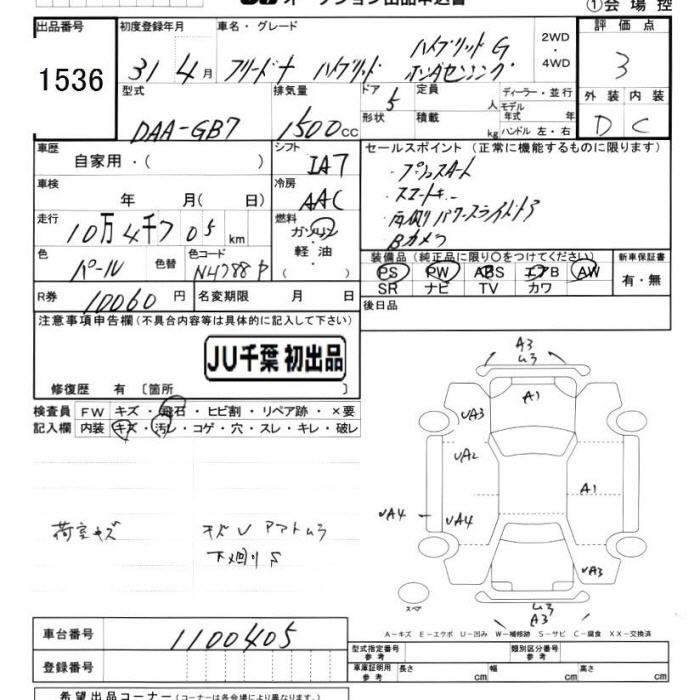 オークション出品申込書
①会場控
出品番号 初度登録年月 車名・グレード 2WD・4WD 評価点
1536 31 4月 フリード+ ハイブリッド ハイブリッドG ホンダセンシング 3
型式 排気量 ドア 5 定員 人 ディーラー・並行
モデル年式 年
外装 内装
DAA-GB7 1500cc 形状 積載 kg ハンドル 左・右 D C
車歴 自家用・( ) シフト IA7 セールスポイント(正常に機能するものに限ります)
・プッシュスタート
車検 年 月(日) 冷房 AAC ・スマートキー
走行 10万4千705km 燃料 ガソリン・軽油・ ・両側パワースライドドア
Bカメラ
色 パール 色替 色コード NH788P 装備品(純正品に限り〇をつけてください) 新車保証書
PS PW ABS エアB AW 有・無
SR ナビ TV カワ
R券 10060円 名変期限 月 日 後日品
注意事項申告欄(不具合内容等は具体的に記入して下さい)
JU千葉 初出品
修復歴 有 〔箇所 〕
検査員記入欄 FW キズ・飛石・ヒビ割・リペア跡・×要
内装 キズ・汚レ・コゲ・穴・スレ・キレ・破レ
荷室キズ
キズU アマトムラ
下廻りS
A3
ムラ
A1
UA3
UA2
A1
UA4
UA4
UA3
ムラ
A3
スペア
A-キズ E-エクボ U-凹み W-補修跡 S-サビ C-腐食 XX-交換済
車台番号 1100405
型式指定番号 参考 類別区分番号 参考
登録番号 車庫証明用 参考 長さ cm 幅 cm 高さ cm
希望出品コーナー(コーナーは各会場により異なります。)